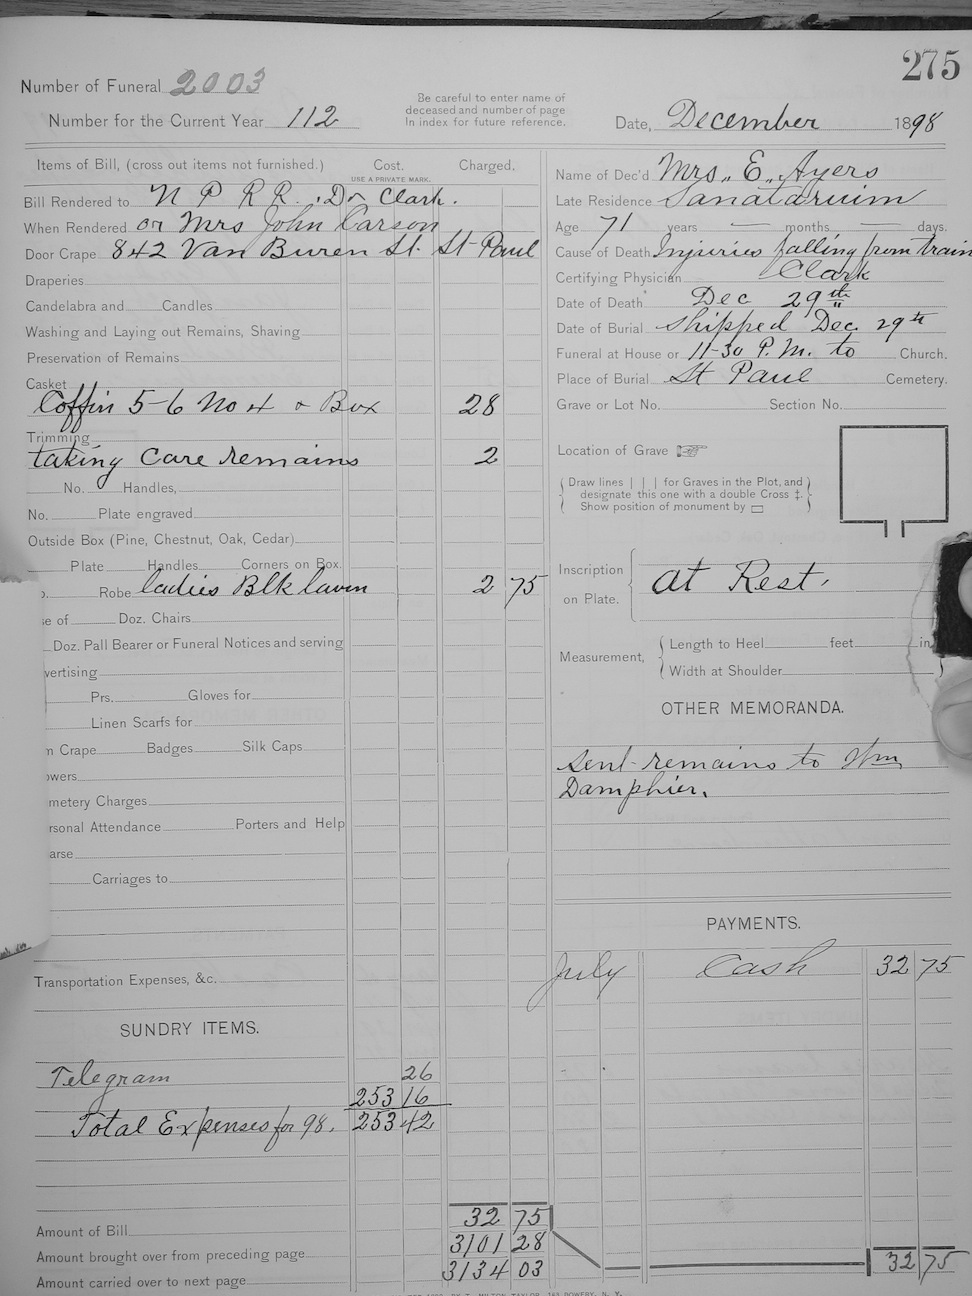 275
Number of Funeral 2003
Be careful to enter name of
deceased and number of page
In index for future reference.
Number for the Current Year 112
Date, December 1898
Items of Bill, (cross out items not furnished.) Cost. Charged.
USE A PRIVATE MARK.
Bill Rendered to N P R R. Dr Clark.
When Rendered or Mrs John Carson
Door Crape 842 Van Buren St. St Paul
Draperies
Candelabra and Candles
Washing and Laying out Remains, Shaving
Preservation of Remains
Casket
Coffin 5-6 No 4 & Box 28
Trimming
taking Care remains 2
No. Handles,
No. Plate engraved
Outside Box (Pine, Chestnut, Oak, Cedar)
Plate Handles Corners on Box.
Robe ladies Blk lawn 2 75
se of Doz. Chairs
Doz. Pall Bearer or Funeral Notices and serving
vertising
Prs. Gloves for
Linen Scarfs for
m Crape Badges Silk Caps
owers
metery Charges
rsonal Attendance Porters and Help
arse
Carriages to
Transportation Expenses, &c.
SUNDRY ITEMS.
Telegram 26
253 16
Total Expenses for 98. 253 42
Amount of Bill 32 75
Amount brought over from preceding page 3101 28
Amount carried over to next page 3134 03
Name of Dec'd Mrs. E. Ayers
Late Residence Sanataruim
Age 71 years — months — days.
Cause of Death Injuries falling from train
Certifying Physician Clark
Date of Death Dec 29th
Date of Burial shipped Dec. 29th
Funeral at House or 11-30 P.M. to Church.
Place of Burial St Paul Cemetery.
Grave or Lot No. Section No.
Location of Grave
Draw lines | | | for Graves in the Plot, and
designate this one with a double Cross ‡.
Show position of monument by ▭
Inscription
on Plate. At Rest.
Measurement, Length to Heel feet in
Width at Shoulder
OTHER MEMORANDA.
sent remains to Wm
Damphier.
PAYMENTS.
July Cash 32 75
32 75